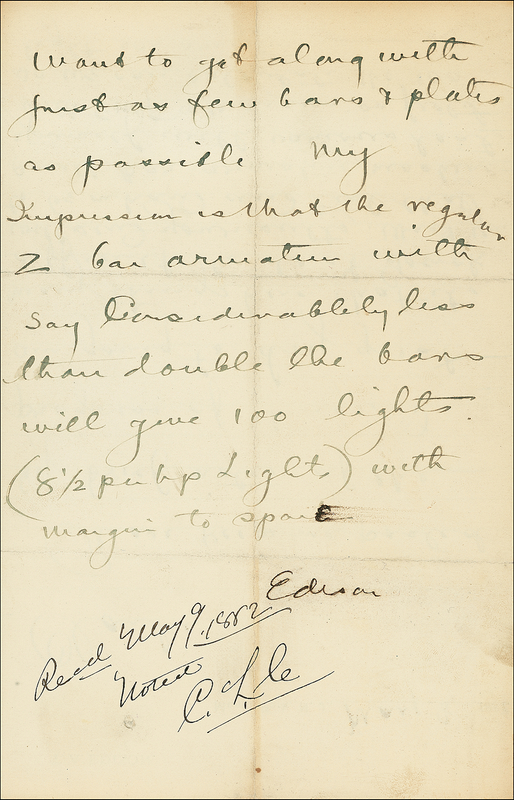 Want to get along with
just as few bars & plates
as possible My
Impression is that the regular
Z bar armature with
say Considerablely less
than double the bars
will give 100 lights.
(8 1/2 per hp Lights) with
margin to spare
Edison
Read May 9, 1882
Noted
C. L. C